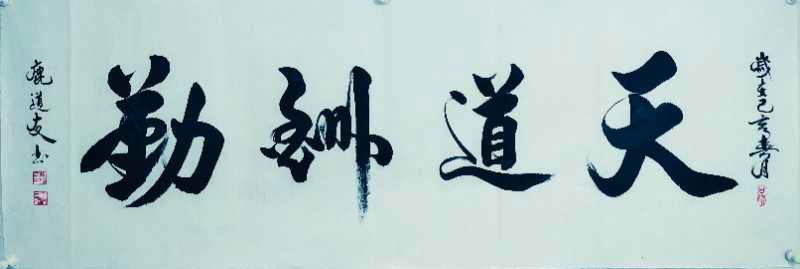 歲在己亥春月
天道酬勤
鹿道友书